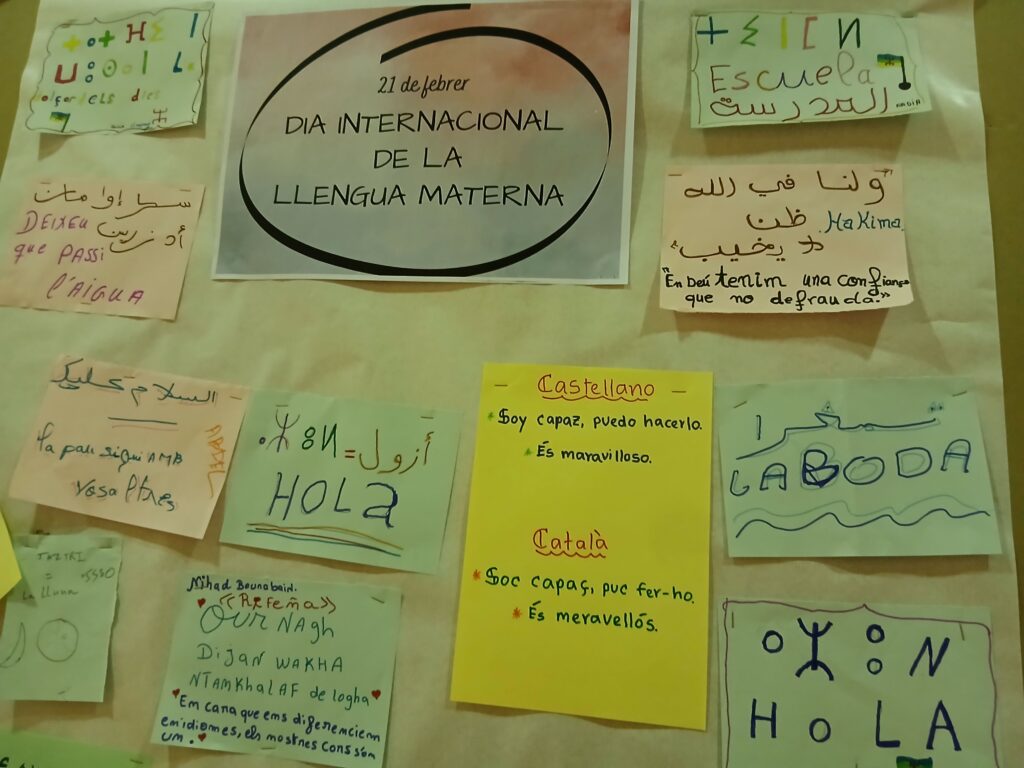 21 de febrer
DIA INTERNACIONAL
DE LA
LLENGUA MATERNA
Escuela
المدرسة
DEIXEU
que PASSI
l'AIGUA
ولنا في الله
ظن
لا يخيب
Hakima.
"En Deú tenim una confiança
que no defrauda."
السلام عليك
la pau sigui AMB
vosaltres
ⴰⵣⵓⵍ = أزول
HOLa
Castellano
Soy capaz, puedo hacerlo.
És maravilloso.
Català
Soc capaç, puc fer-ho.
És meravellós.
LA BODA
TAZIRI
=
La lluna
Nihad Bounabaid.
«RifeñA»
Our NAgh
DiJAN WAKHA
NTAMKhalAF de logha
"Em cara que ems diferenciem
em idiomes, els mostres cors som
um."
ⴰⵣⵓⵍ
HoLA